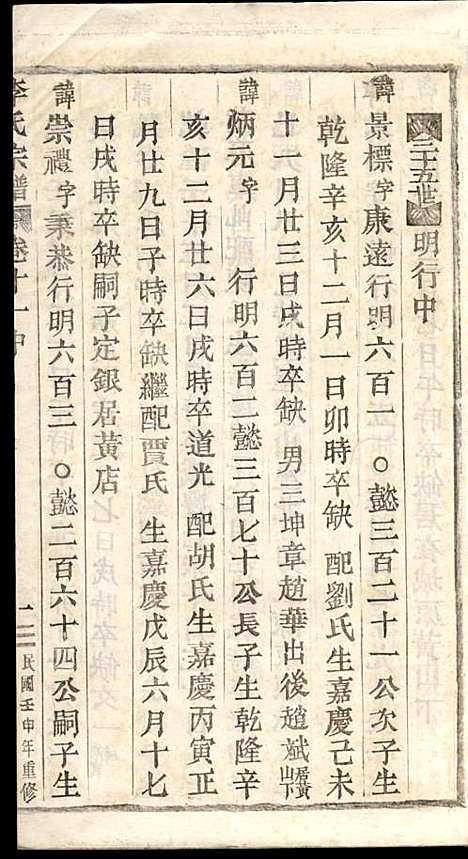 三十五世 明行中
諱景標字康遠行明六百一 〇懿三百二十一公次子生
乾隆辛亥十二月一日卯時卒缺 配劉氏生嘉慶己未
十一月廿三日戌時卒缺 男三坤章趙華出後趙斌
諱炳元字 行明六百二懿三百七十公長子生乾隆辛
亥十二月廿六日戌時卒道光 配胡氏生嘉慶丙寅正
月廿九日子時卒缺繼配賈氏 生嘉慶戊辰六月十七
日戌時卒缺嗣子定銀居黃店
諱崇禮字秉恭行明六百三 〇懿二百六十四公嗣子生
李氏宗譜 卷十一中 民國壬申年重修